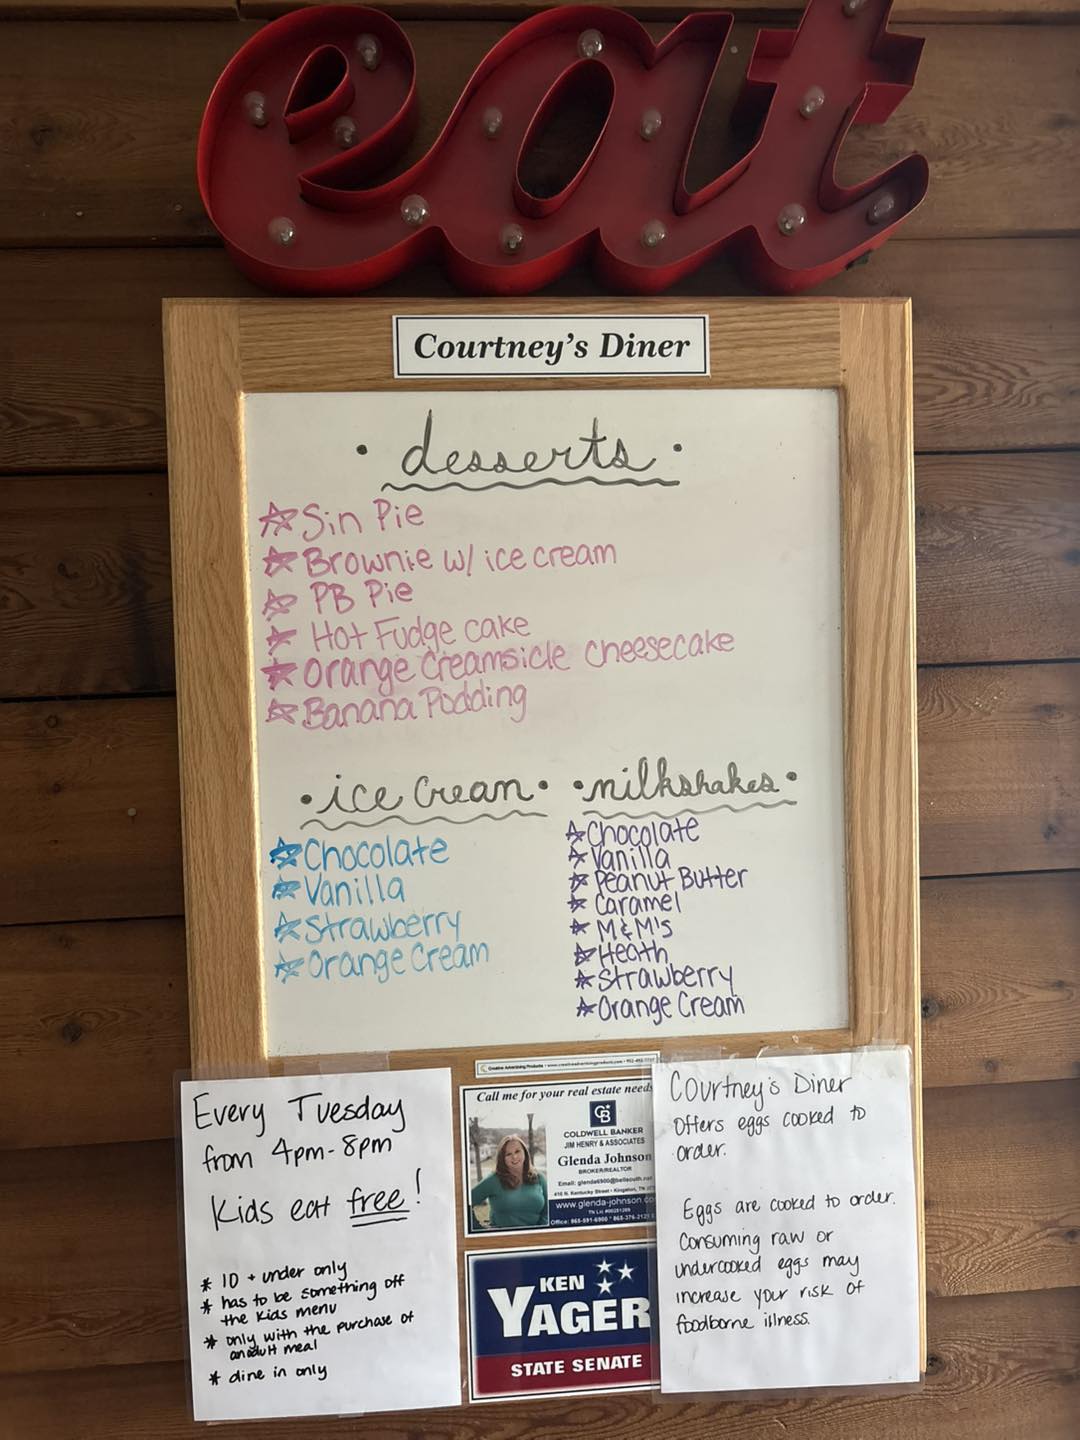 eat
Courtney's Diner
desserts
Sin Pie
Brownie w/ ice cream
PB Pie
Hot Fudge cake
Orange Creamsicle Cheesecake
Banana Pudding
ice cream
Chocolate
Vanilla
Strawberry
Orange Cream
milkshakes
Chocolate
Vanilla
Peanut Butter
Caramel
M&M's
Heath
Strawberry
Orange Cream
Every Tuesday
from 4pm-8pm
Kids eat free!
* 10 + under only
* has to be something off
the kids menu
* only with the purchase of
an adult meal
* dine in only
Creative Advertising Products
Call me for your real estate needs
CB
COLDWELL BANKER
JIM HENRY & ASSOCIATES
Glenda Johnson
BROKER/REALTOR
Email: glenda6900@bellsouth.net
410 N. Kentucky Street • Kingston, TN
www.glenda-johnson.co
Office:
KEN
YAGER
STATE SENATE
Courtney's Diner
Offers eggs cooked to
order.
Eggs are cooked to order.
Consuming raw or
undercooked eggs may
increase your risk of
foodborne illness.